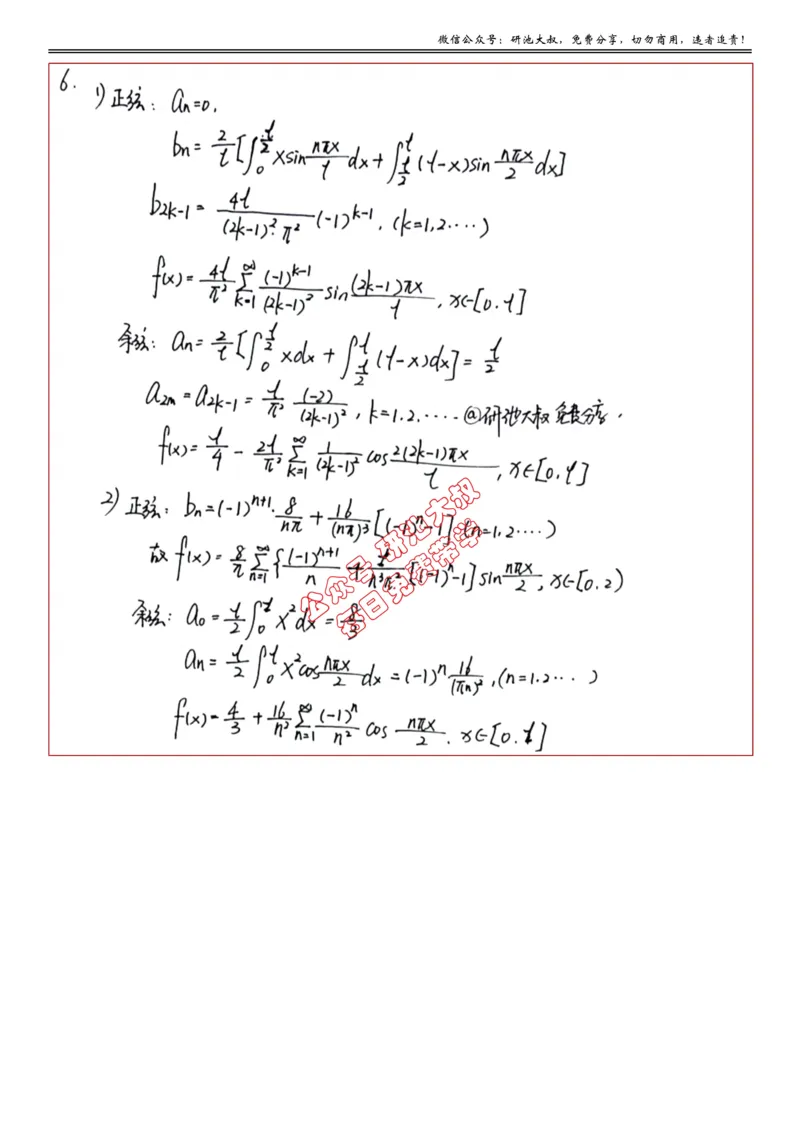 微信公众号：研池大叔，免费分享，切勿商用，违者追责！
6. 1) 正弦: an=0,
bn = 2/l [∫_0^{l/2} x sin nπx/l dx + ∫_{l/2}^{l} (l-x) sin nπx/2 dx]
b2k-1 = 4l/((2k-1)²·π²) (-1)^{k-1}, (k=1,2····)
f(x) = 4l/π² ∑_{k=1}^{∞} (-1)^{k-1}/(2k-1)² sin (2k-1)πx/l, x∈[0,l]
余弦: an = 2/l [∫_0^{l/2} xdx + ∫_{l/2}^{l} (l-x)dx] = l/2
a2m = a2k-1 = l/π² (-2)/(2k-1)², k=1.2.···· @研池大叔 免费分享,
f(x) = l/4 - 2l/π² ∑_{k=1}^{∞} 1/(2k-1)² cos 2(2k-1)πx/l, x∈[0,l]
2) 正弦: bn = (-1)^{n+1}· 8/nπ + 16/(nπ)³ [(-1)^n-1] (n=1,2····)
故 f(x) = 8/π ∑_{n=1}^{∞} { (-1)^{n+1}/n + 2/n³π² [(-1)^n-1] sin nπx/2, x∈[0,2)
余弦: a0 = l/2 ∫_0^l x²dx = 8/3
an = l/2 ∫_0^l x² cos nπx/2 dx = (-1)^n 16/(πn)², (n=1.2··· )
f(x) = 4/3 + 16/n² ∑_{n=1}^{∞} (-1)^n/n² cos nπx/2. x∈[0.l]
公众号 研池大叔
每日免费带学